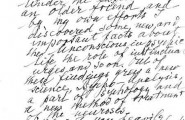 under the
an older friend and
by my own efforts
discovered some new and
important facts about
the unconscious in psychic
life, the role of instinctual
urges and so on. Out of
these findings grew a new
science, Psycho-Analysis,
a part of psychology and
a new method of treatment
of the neuroses.